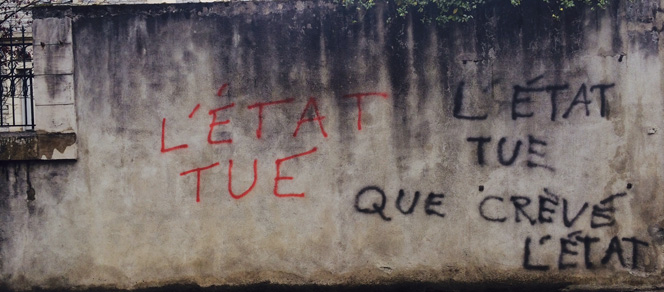 L'ÉTAT
TUE
L'ÉTAT
TUE
QUE "CRÈVÉ"
L'ÉTAT